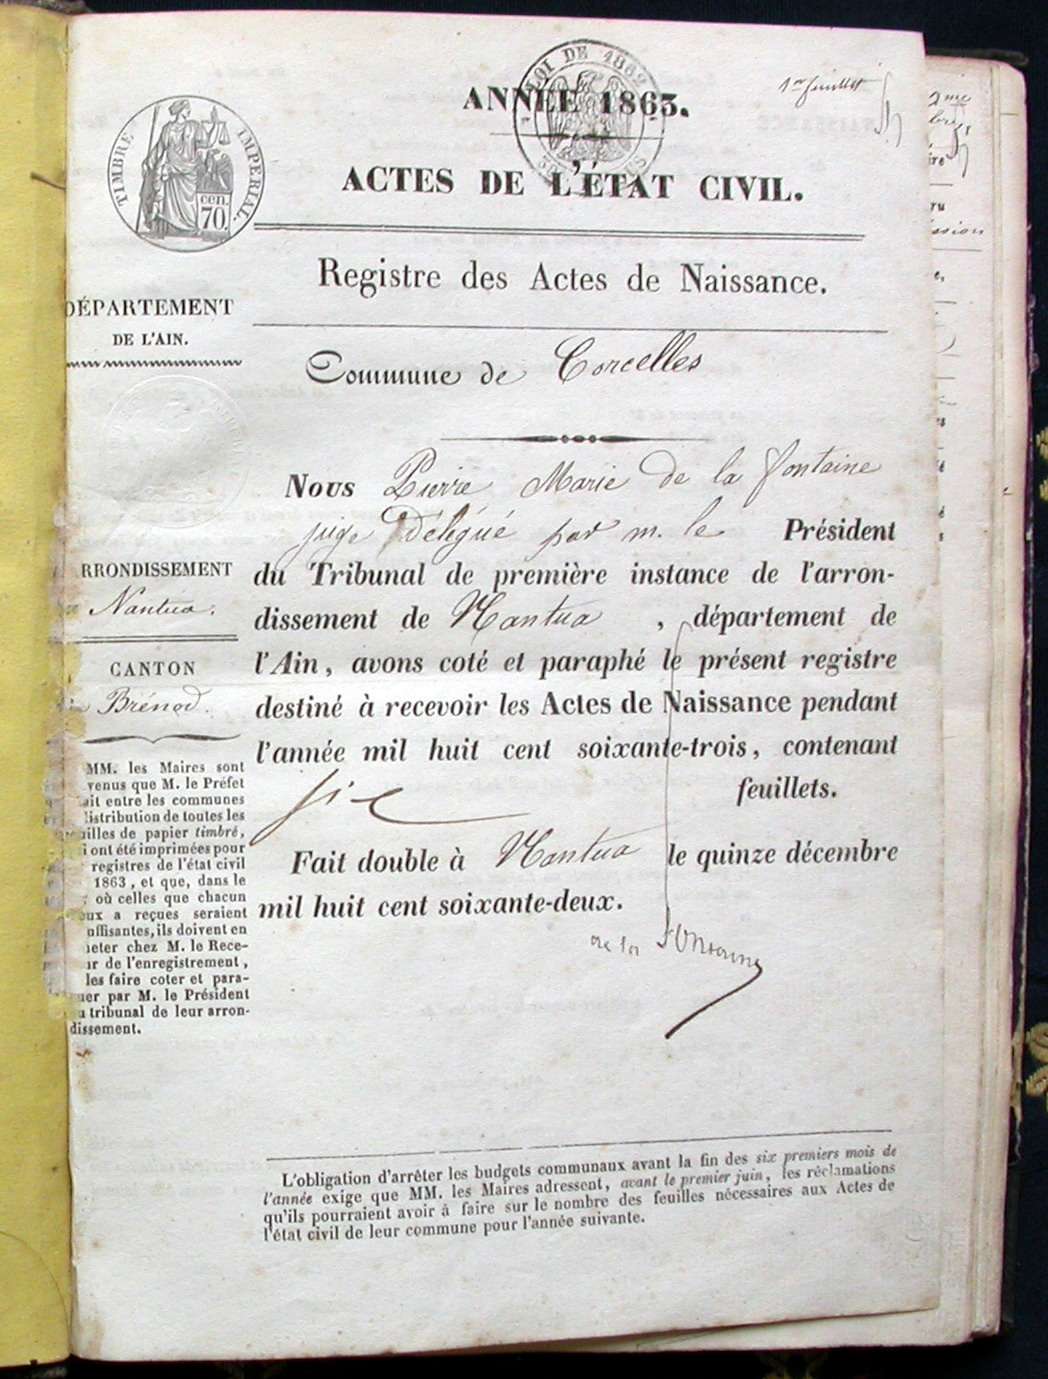 LOI DE 1862
ANNÉE 1863.
1er feuillet
TIMBRE IMPERIAL.
cen.
70.
ACTES DE L'ÉTAT CIVIL.
Registre des Actes de Naissance.
DÉPARTEMENT
DE L'AIN.
Commune de Corcelles
Nous Pierre Marie de la fontaine
juge Délégué par m. le Président
du Tribunal de première instance de l'arron-
dissement de Nantua, département de
l'Ain, avons coté et paraphé le présent registre
destiné à recevoir les Actes de Naissance pendant
l'année mil huit cent soixante-trois, contenant
six feuillets.
Fait double à Nantua le quinze décembre
mil huit cent soixante-deux.
de la Fontaine
RRONDISSEMENT
Nantua.
CANTON
Brénod.
MM. les Maires sont
venus que M. le Préfet
ait entre les communes
istribution de toutes les
uilles de papier timbré,
i ont été imprimées pour
registres de l'état civil
1863, et que, dans le
où celles que chacun
eux a reçues seraient
uffisantes, ils doivent en
heter chez M. le Rece-
ur de l'enregistrement,
les faire coter et para-
her par M. le Président
u tribunal de leur arron-
dissement.
L'obligation d'arrêter les budgets communaux avant la fin des six premiers mois de
l'année exige que MM. les Maires adressent, avant le premier juin, les réclamations
qu'ils pourraient avoir à faire sur le nombre des feuilles nécessaires aux Actes de
l'état civil de leur commune pour l'année suivante.
2me